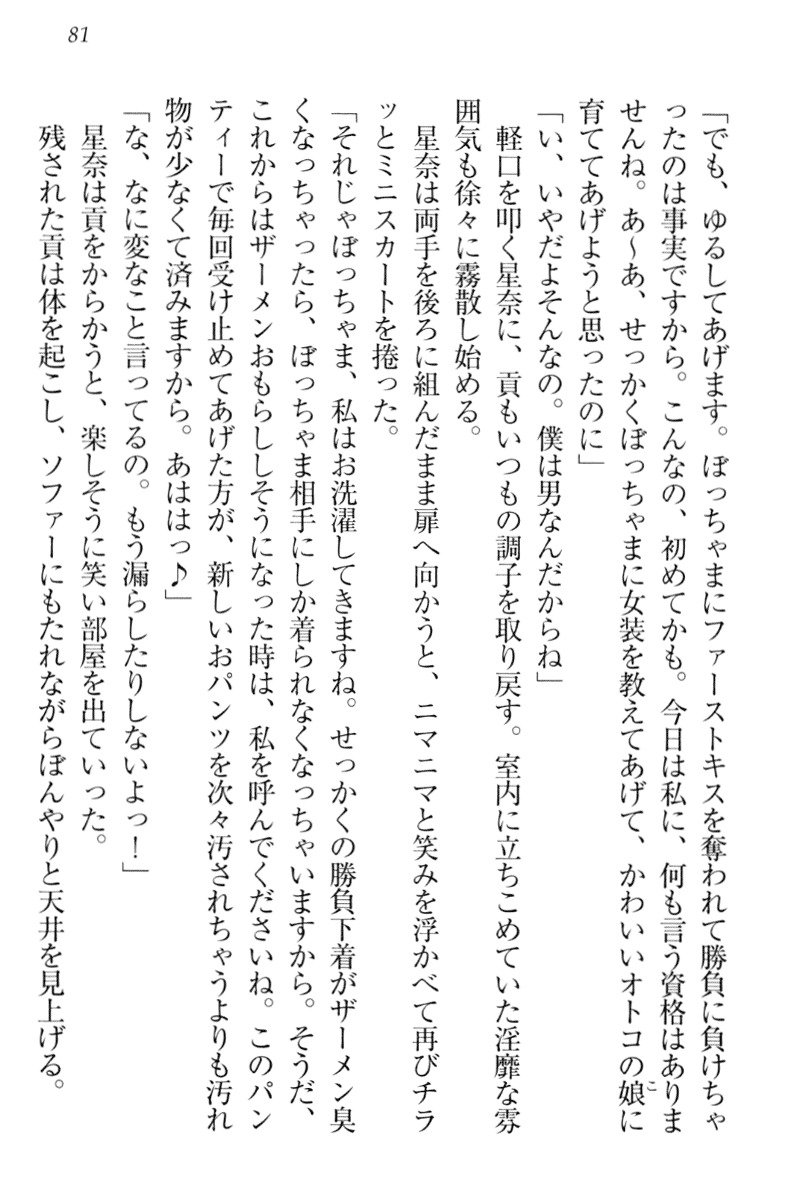 81
「でも、ゆるしてあげます。ぼっちゃまにファーストキスを奪われて勝負に負けちゃ
ったのは事実ですから。こんなの、初めてかも。今日は私に、何も言う資格はありま
せんね。あ～あ、せっかくぼっちゃまに女装を教えてあげて、かわいいオトコの娘こに
育ててあげようと思ったのに」
「い、いやだよそんなの。僕は男なんだからね」
　軽口を叩く星奈に、貢もいつもの調子を取り戻す。室内に立ちこめていた淫靡な雰
囲気も徐々に霧散し始める。
　星奈は両手を後ろに組んだまま扉へ向かうと、ニマニマと笑みを浮かべて再びチラ
ッとミニスカートを捲った。
「それじゃぼっちゃま、私はお洗濯してきますね。せっかくの勝負下着がザーメン臭
くなっちゃったら、ぼっちゃま相手にしか着られなくなっちゃいますから。そうだ、
これからはザーメンおもらししそうになった時は、私を呼んでくださいね。このパン
ティーで毎回受け止めてあげた方が、新しいおパンツを次々汚されちゃうよりも汚れ
物が少なくて済みますから。あははっ♪」
「な、なに変なこと言ってるの。もう漏らしたりしないよっ！」
　星奈は貢をからかうと、楽しそうに笑い部屋を出ていった。
　残された貢は体を起こし、ソファーにもたれながらぼんやりと天井を見上げる。